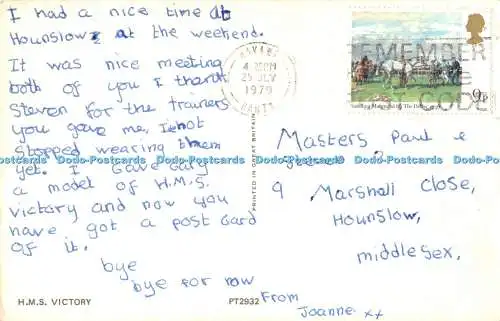 I had a nice time at
Hounslow at the weekend.
It was nice meeting
both of you I thank
Steven for the trainers
you gave me, I not
stopped wearing them
yet. I Gave Gary
a model of H.M.S.
victory and now you
have got a post Card
of it.
bye
bye for now
From
Joanne xx
H.M.S. VICTORY
PT2932
PRINTED IN GREAT BRITAIN
4 30PM
25 JLY
1979
HANTS
REMEMBER
POST CODE
9p
Masters Paul &
9 Marshall Close,
Hounslow,
middlesex,
Dodo-Postcards Dodo-Postcards Dodo-Postcards Dodo-Postcards Dodo-Postcards